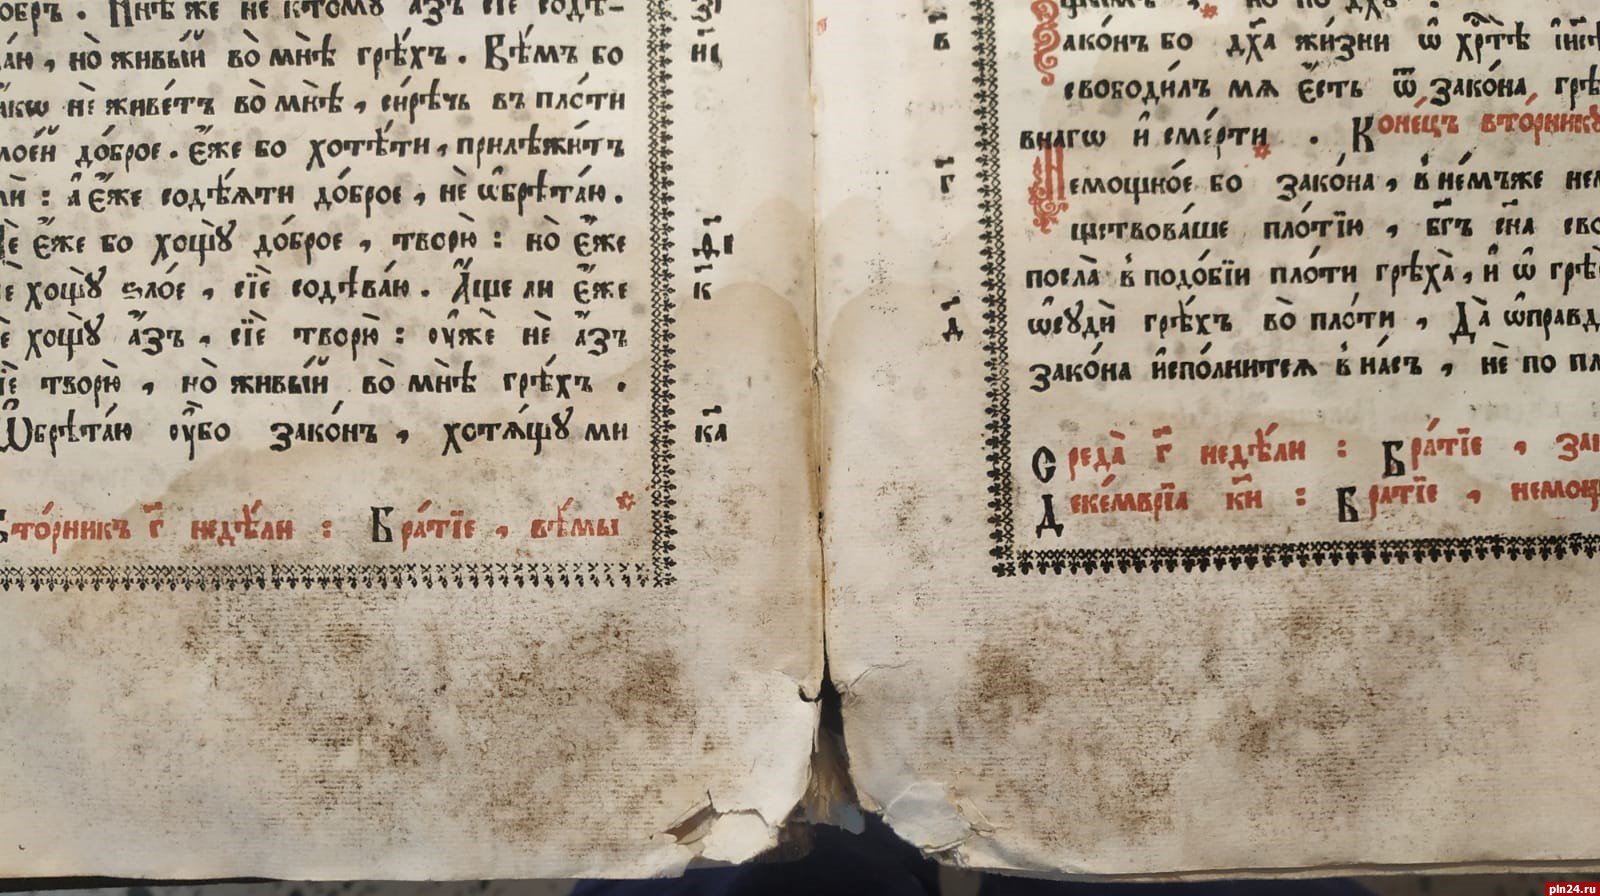 добръ. Ны́нѣ же не ктому̀ а҆́зъ сїѐ содѣ-
ва́ю, но̀ живы́й во̀ мнѣ̀ грѣ́хъ. Вѣ́мъ бо
ꙗ҆́кѡ нѐ живе́тъ во̀ мнѣ̀, си́рѣчь въ пло́ти
мое́й до́брое. є҆́же бо хотѣ́ти, прилѣжи́тъ
ми̑: а҆ є҆́же содѣ́ѧти до́брое, нѐ ѡ҆брѣта́ю.
Нѐ є҆́же бо хощꙋ̀ до́брое, творю̀: но̀ є҆́же
нѐ хощꙋ̀ ѕло́е, сїѐ содѣва́ю. А҆́ще ли є҆́же
нѐ хощꙋ̀ а҆́зъ, сїѐ творю̀: ᲂу҆жѐ нѐ а҆́зъ
сїѐ творю̀, но̀ живы́й во̀ мнѣ̀ грѣ́хъ.
Ѡ҆брѣта́ю ᲂу҆̀бо зако́нъ, хотѧ́щꙋ ми
вто́рникъ г҃ недѣ́ли: Бра́тїе, вѣ́мы*
н҃і
к҃
к҃а
Зако́нъ бо дх҃а жи́зни ѡ҆ хрт҇ѣ̀ і҆и҃сѣ
свободи́лъ мѧ є҆́сть ѿ зако́на грѣ
внагѡ и҆ сме́рти. Коне́цъ вто́рникꙋ
Немощно́е бо зако́на, в не́мъже нем
ществова́ше пло́тїю, бг҃ъ сн҃а сво
посла̀ в подо́бїи пло́ти грѣха̀, и҆ ѡ҆ грѣ
ѡ҆сꙋдѝ грѣ́хъ во̀ пло́ти, Да̀ ѡ҆правд
зако́на и҆спо́лнитсѧ в на́съ, нѐ по пл
в҃
г҃
д҃
Среда̀ г҃ недѣ́ли: Бра́тїе, зак
Деке́мврїа к҃и: Бра́тїе, немощ
pln24.ru